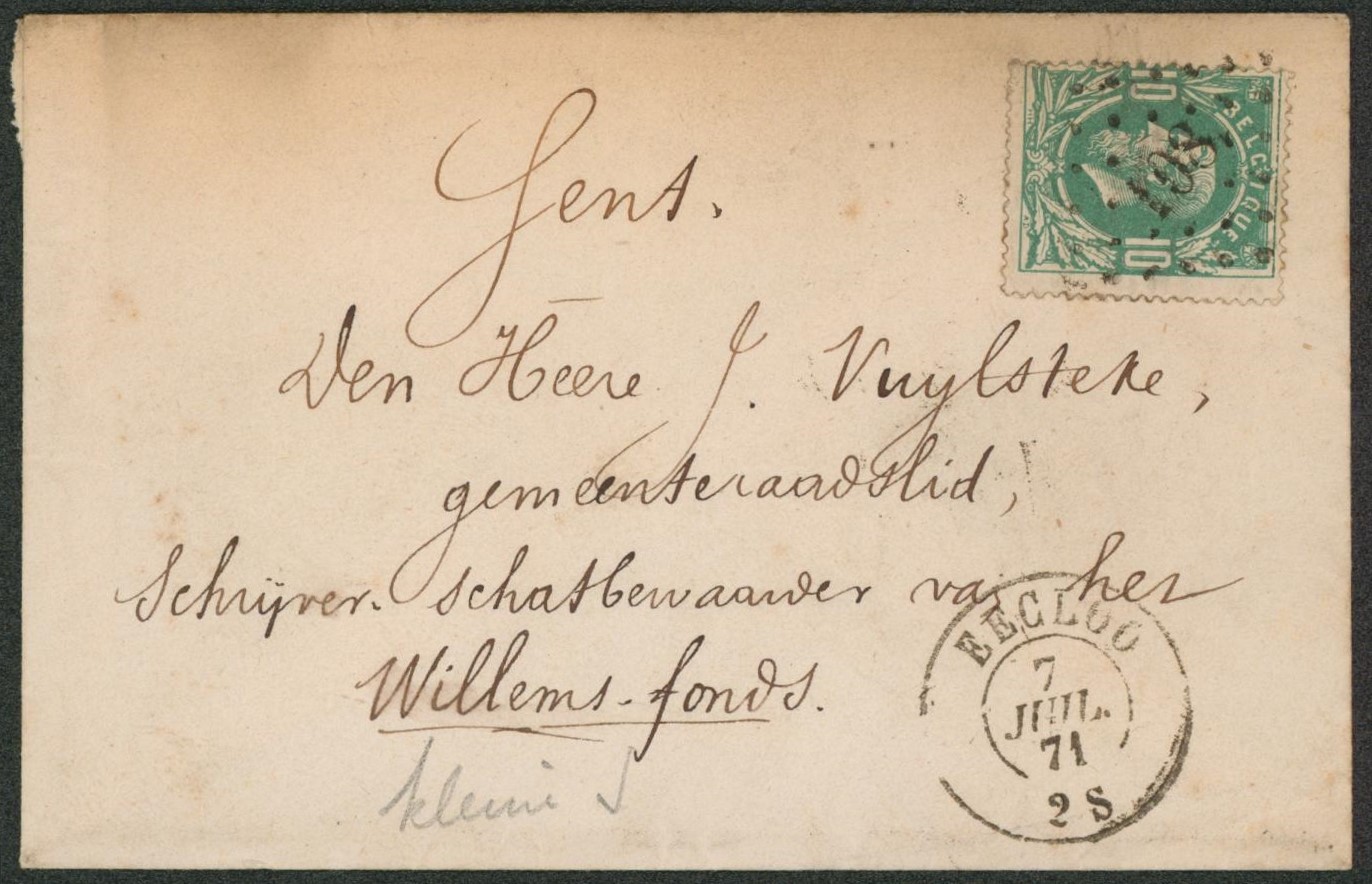 Gent.
Den Heere J. Vuylsteke,
gemeenteraadslid,
Schrijver-schatbewaarder van het
Willems-fonds.
10
BELGIQUE
10
EECLOO
7
JUIL.
71
2 S